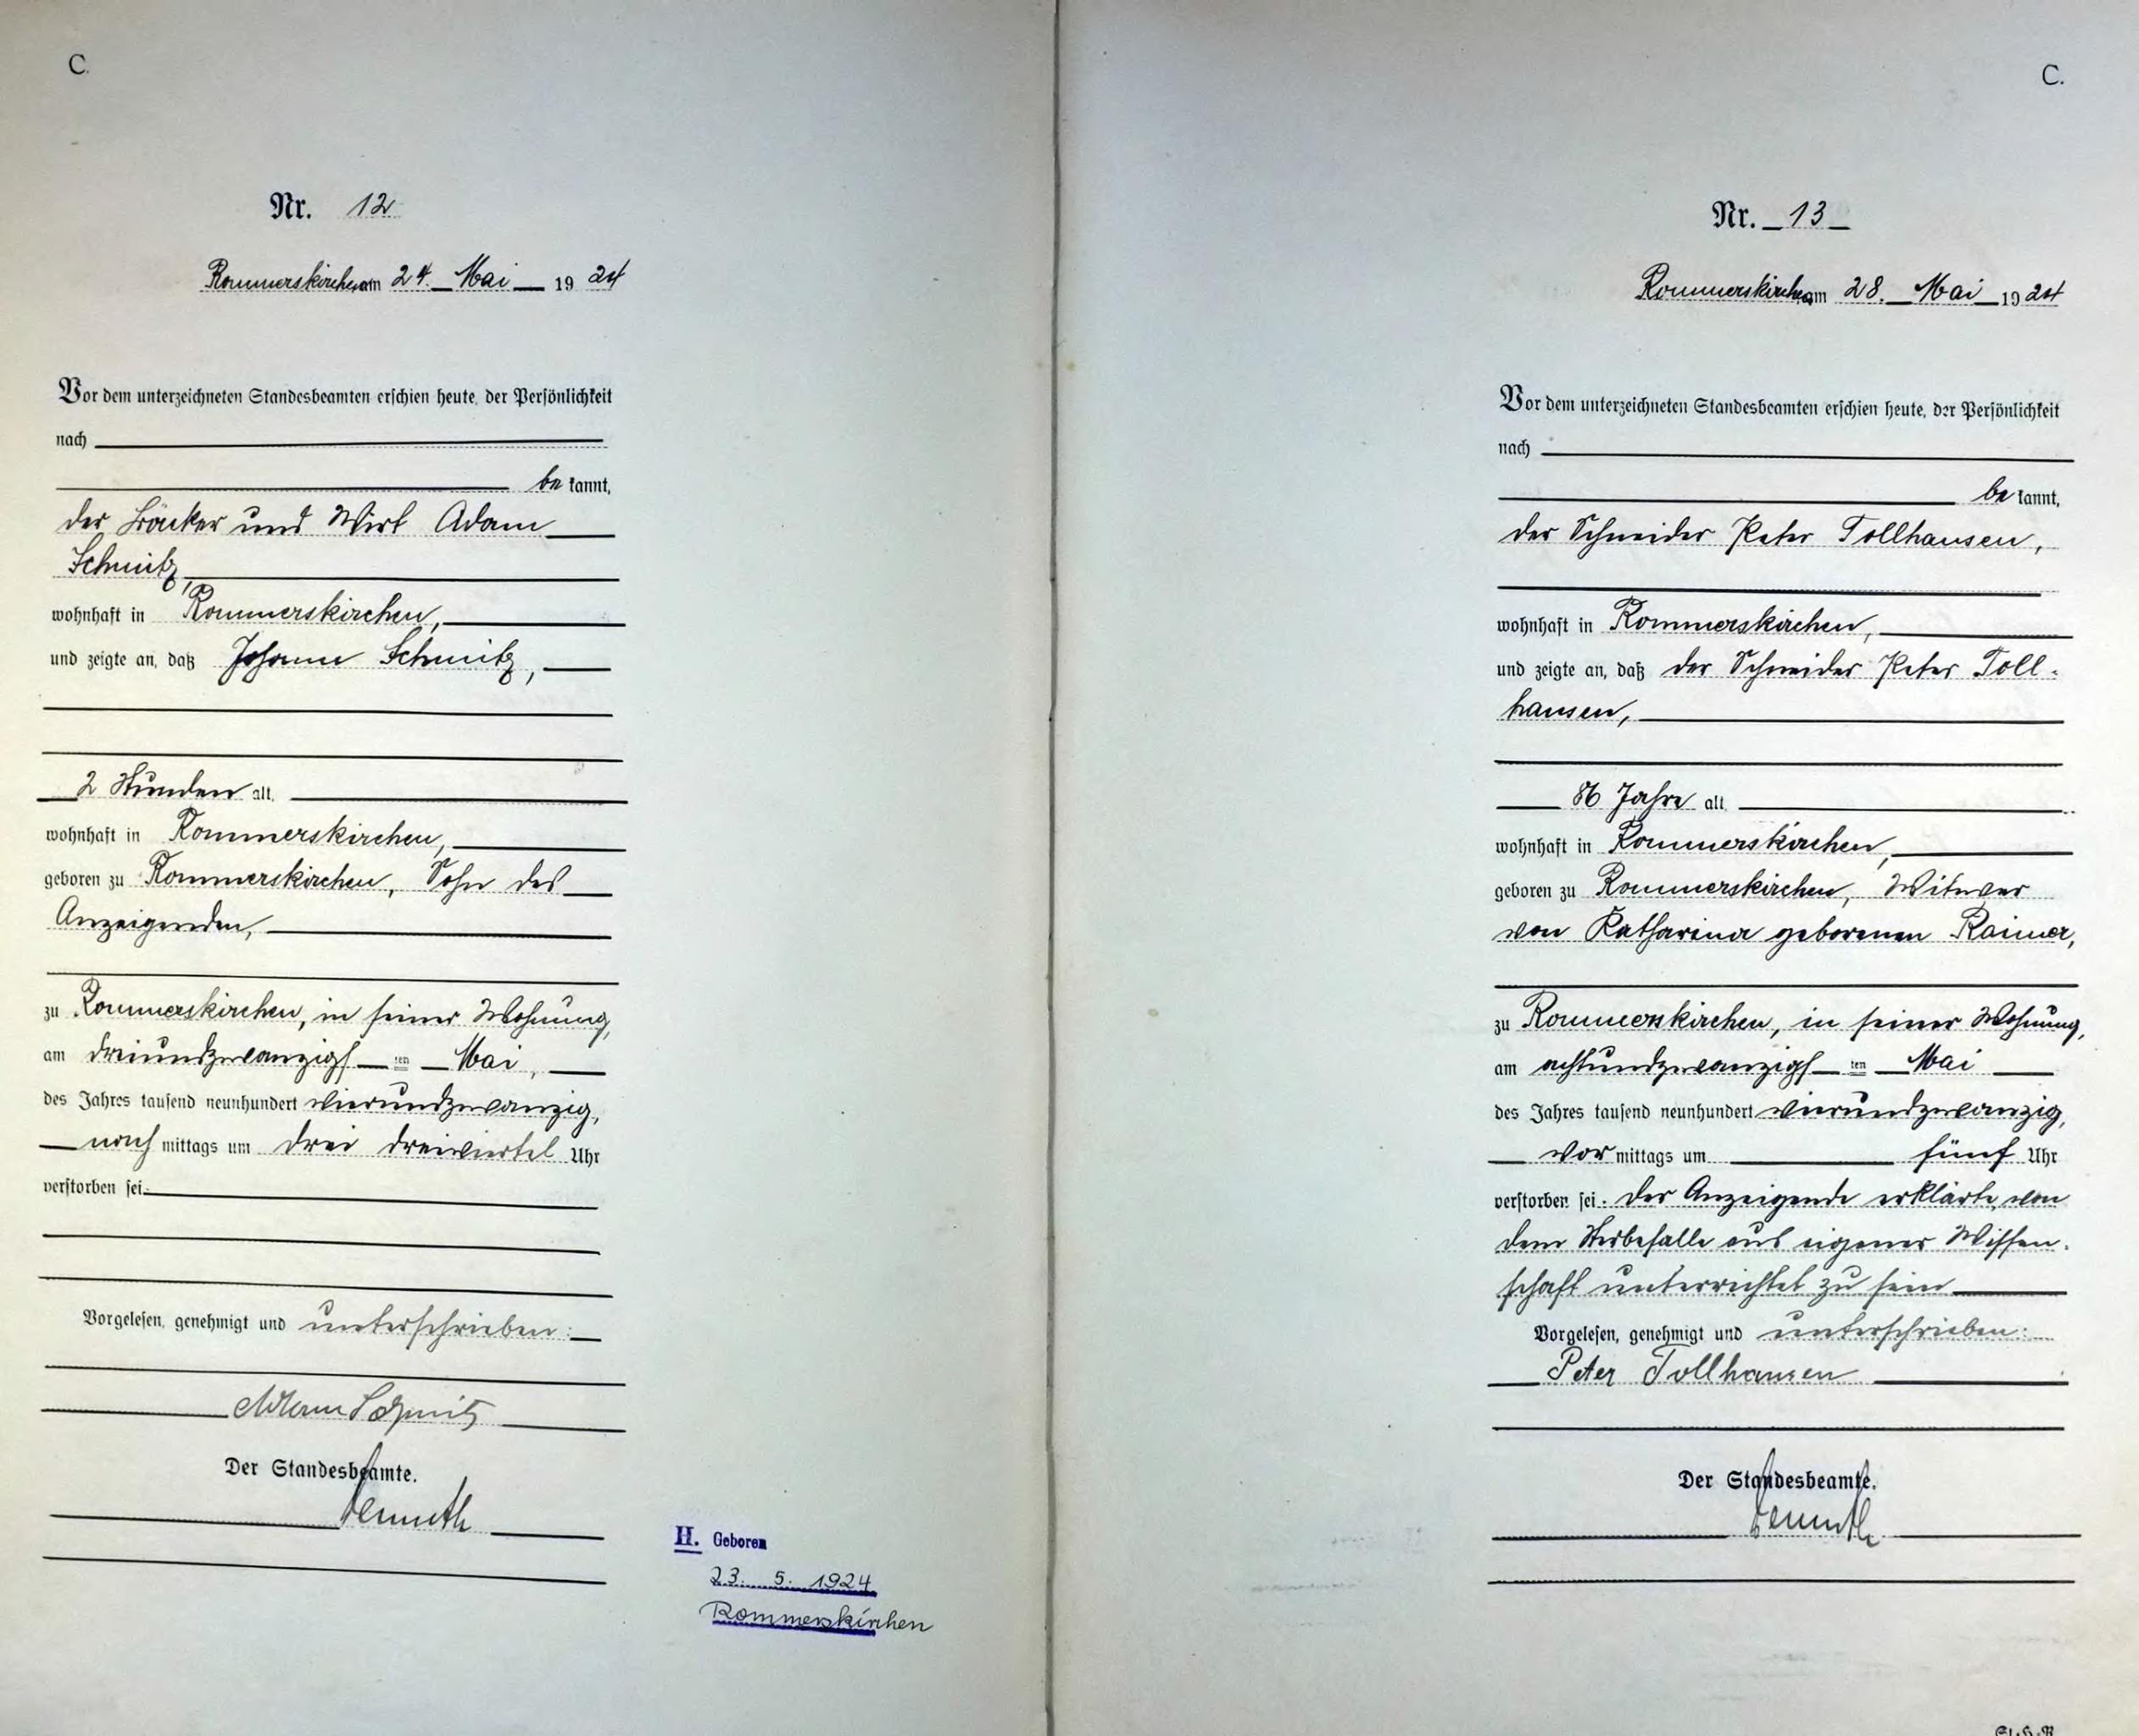 C.
Nr. 12
Rommerskirchen am 24. Mai 1924
Vor dem unterzeichneten Standesbeamten erschien heute, der Persönlichkeit
nach
be kannt,
der Bäcker und Wirt Adam
Schmitz,
wohnhaft in Rommerskirchen,
und zeigte an, daß Johann Schmitz,
2 Stunden alt,
wohnhaft in Rommerskirchen,
geboren zu Rommerskirchen, Sohn des
Anzeigenden,
zu Rommerskirchen, in seiner Wohnung,
am dreiundzwanzigsten Mai,
des Jahres tausend neunhundert vierundzwanzig,
nach mittags um drei dreiviertel Uhr
verstorben sei.
Vorgelesen, genehmigt und unterschrieben:
Adam Schmitz
Der Standesbeamte.
H. Geboren
23. 5. 1924
Rommerskirchen
C.
Nr. 13
Rommerskirchen am 28. Mai 1924
Vor dem unterzeichneten Standesbeamten erschien heute, der Persönlichkeit
nach
be kannt,
der Schneider Peter Tollhausen,
wohnhaft in Rommerskirchen,
und zeigte an, daß der Schneider Peter Toll-
hausen,
86 Jahre alt,
wohnhaft in Rommerskirchen,
geboren zu Rommerskirchen, Witwer
von Katharina geborenen Raimer,
zu Rommerskirchen, in seiner Wohnung,
am achtundzwanzigsten Mai
des Jahres tausend neunhundert vierundzwanzig,
vor mittags um fünf Uhr
verstorben sei. Der Anzeigende erklärte, von
dem Sterbefalle aus eigener Wissen-
schaft unterrichtet zu sein
Vorgelesen, genehmigt und unterschrieben:
Peter Tollhausen
Der Standesbeamte.